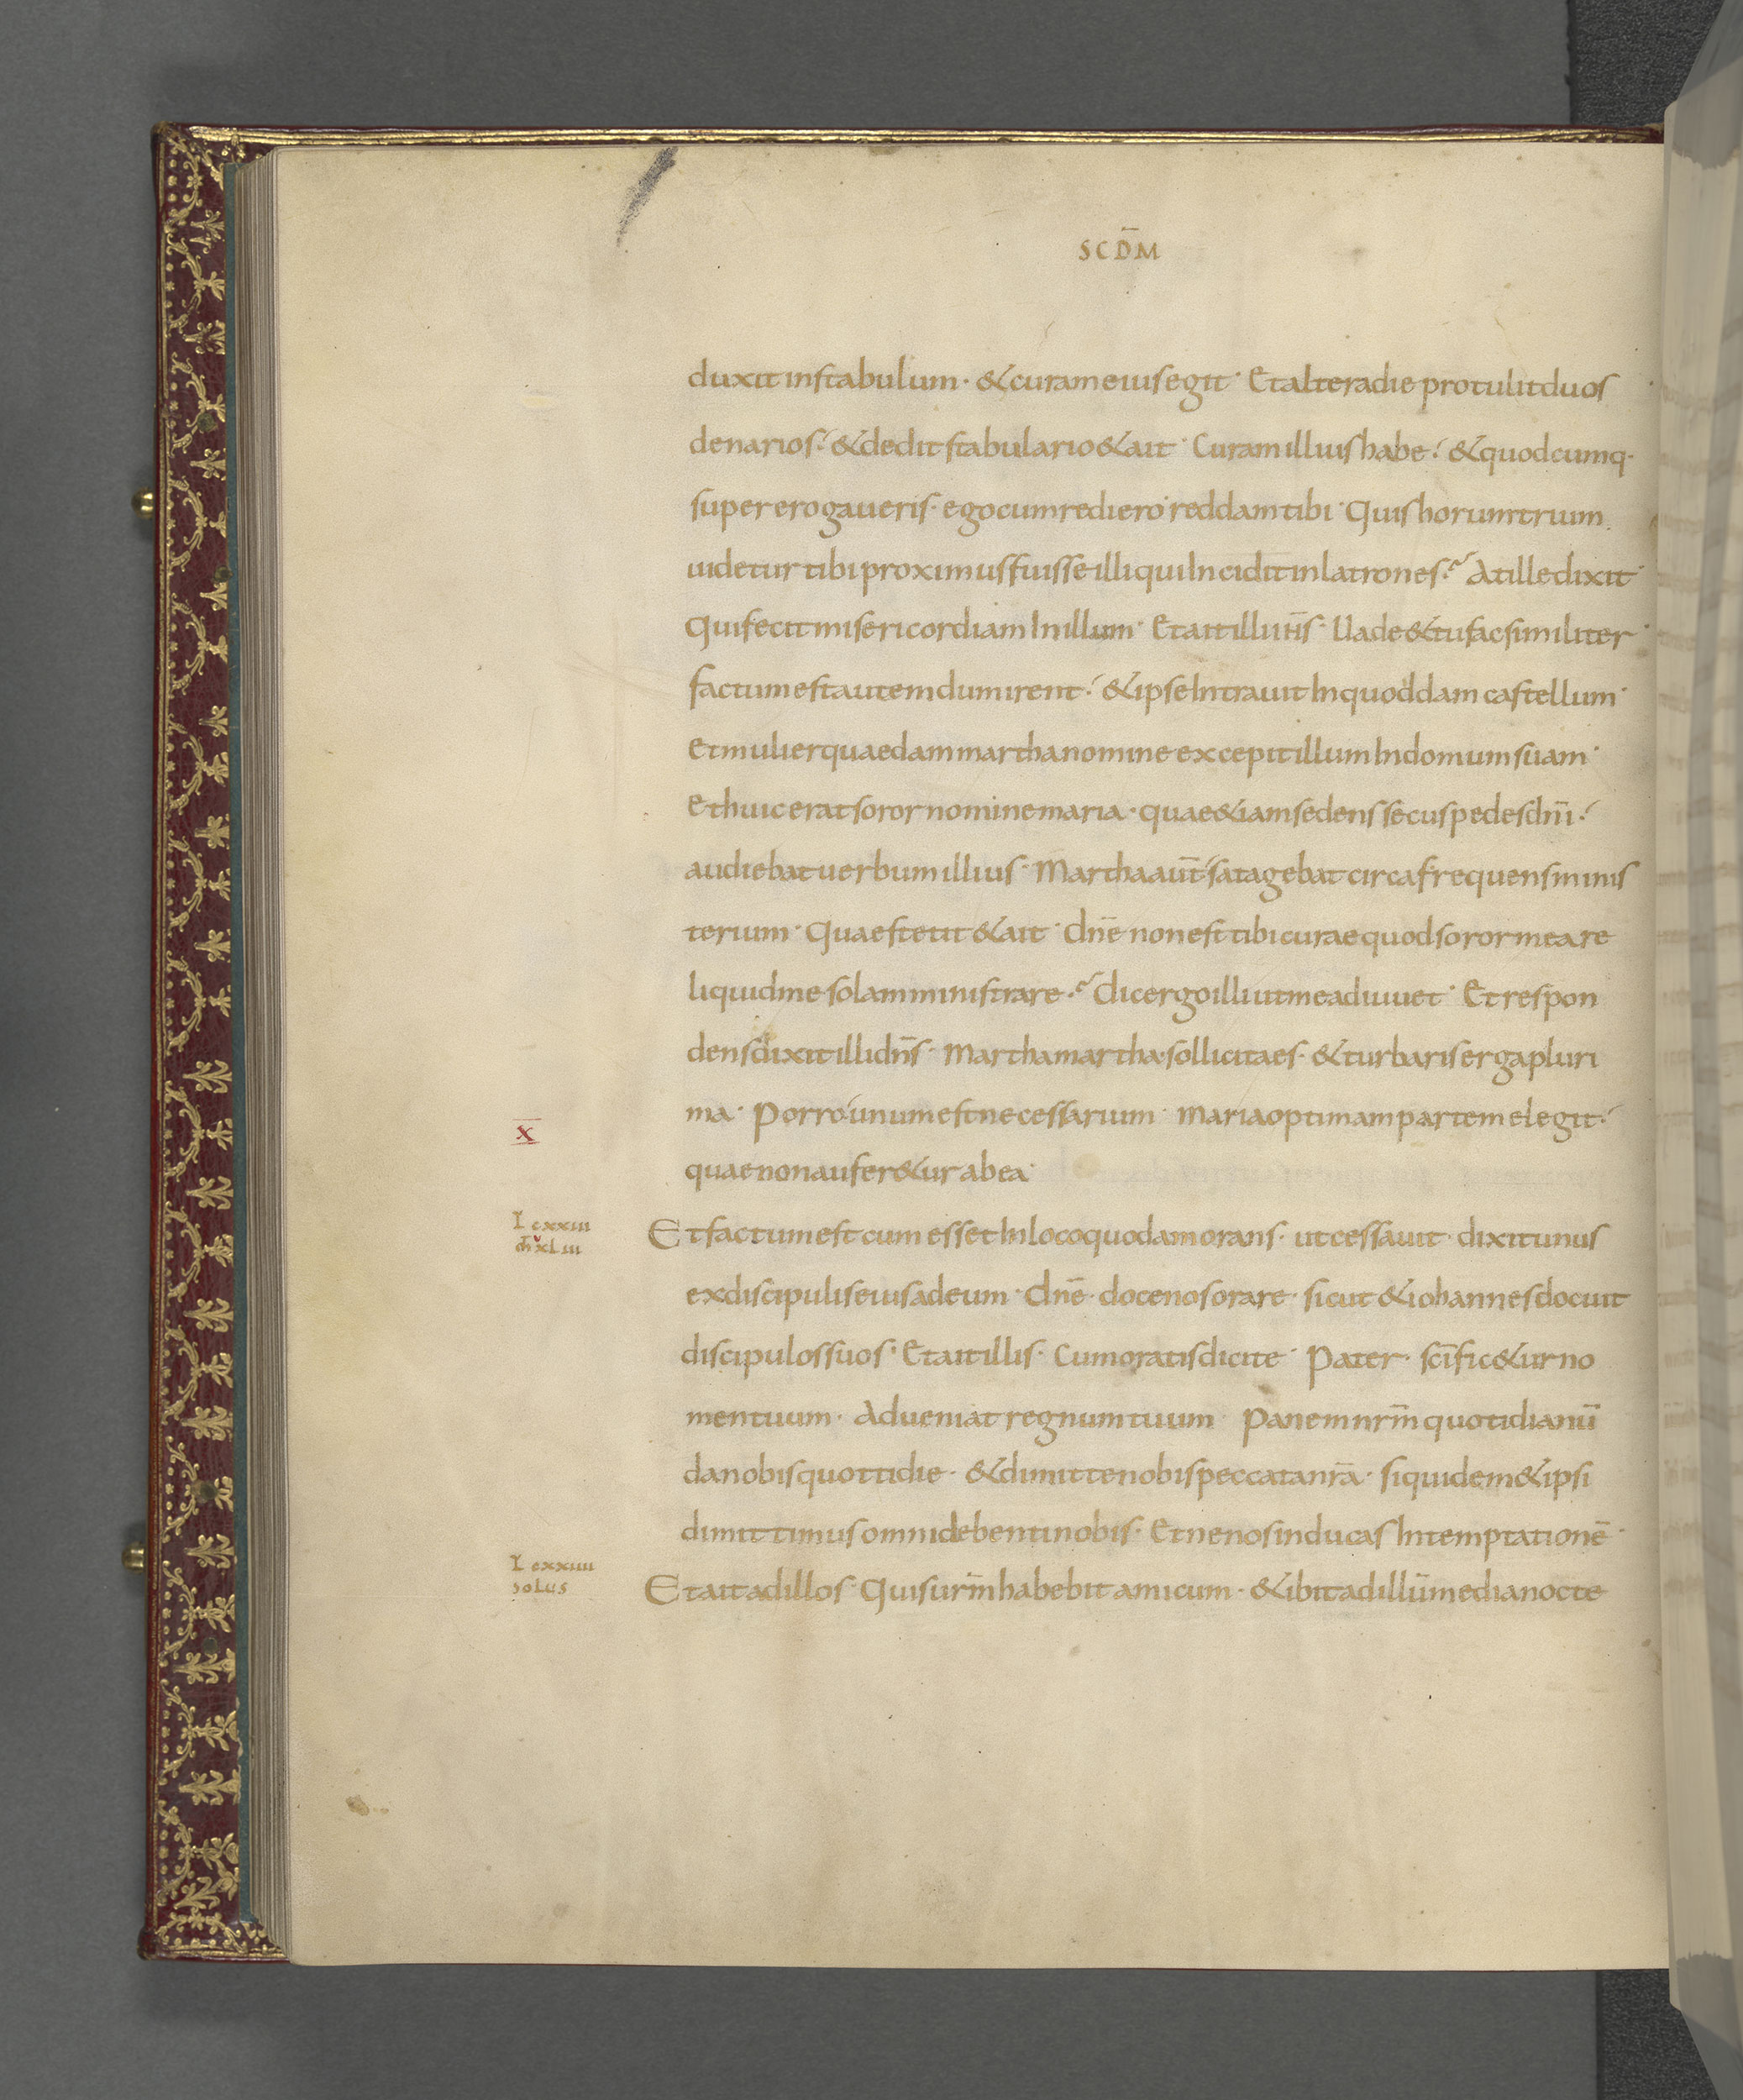 SCD̄M
duxit in stabulum · & curam eius egit · Et altera die protulit duos
denarios · & dedit stabulario & ait · Curam illius habe · & quodcumq·
super erogaueris · ego cum rediero reddam tibi · Quis horum trium
uidetur tibi proximus fuisse illi qui Incidit in latrones ? At ille dixit ·
Qui fecit misericordiam In illum · Et ait illi ih̄s · Uade & tu fac similiter ·
factum est autem dum irent · & ipse Intrauit In quoddam castellum ·
Et mulier quaedam martha nomine excepit illum In domum suam ·
Et huic erat soror nomine maria · quae &iam sedens secus pedes dn̄i ·
audiebat uerbum illius · Martha aut̄ satagebat circa frequens minis
terium · Quae stetit & ait · dn̄e non est tibi curae quod soror mea re
liquid me solam ministrare ? dic ergo illi ut me adiuuet · Et respon
dens dixit illi dn̄s · Martha martha sollicita es · & turbaris erga pluri
ma · Porro unum est necessarium · Maria optimam partem elegit ·
X̄
quae non aufer&ur ab ea ·
L cxxiii
m̄ v xLiii
Et factum est cum esset In loco quodam orans · ut cessauit · dixit unus
ex discipulis eius ad eum · Dn̄e · doce nos orare · sicut & iohannes docuit
discipulos suos · Et ait illis · Cum oratis dicite · Pater · sc̄ific&ur no
men tuum · Adueniat regnum tuum · Panem nr̄m quotidianū
da nobis quottidie · & dimitte nobis peccata nr̄a · siquidem & ipsi
dimittimus omni debenti nobis · Et ne nos inducas In temptationē ·
L cxxiiii
soLus
Et ait ad illos · Quis ur̄m habebit amicum · & ibit ad illū media nocte